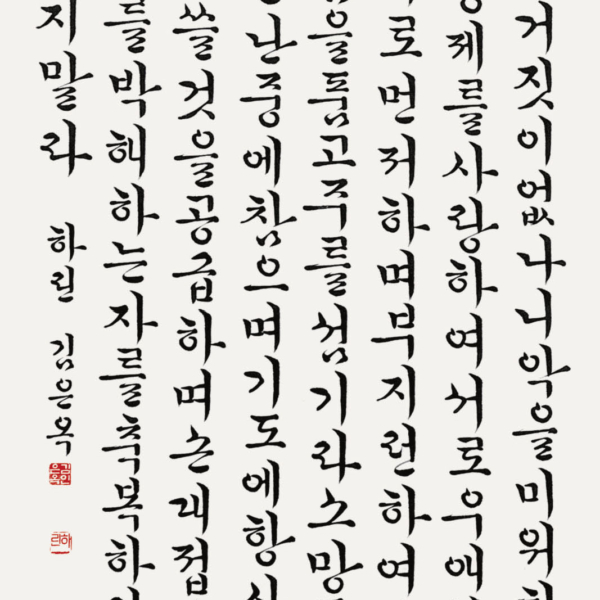 거짓이없나니악을미워
제를사랑하여서로우애
로먼저하며부지런하여
을품고주를섬기라소망
난중에참으며기도에항
쓸것을공급하며손대접
를박해하는자를축복하
지말라 김은옥